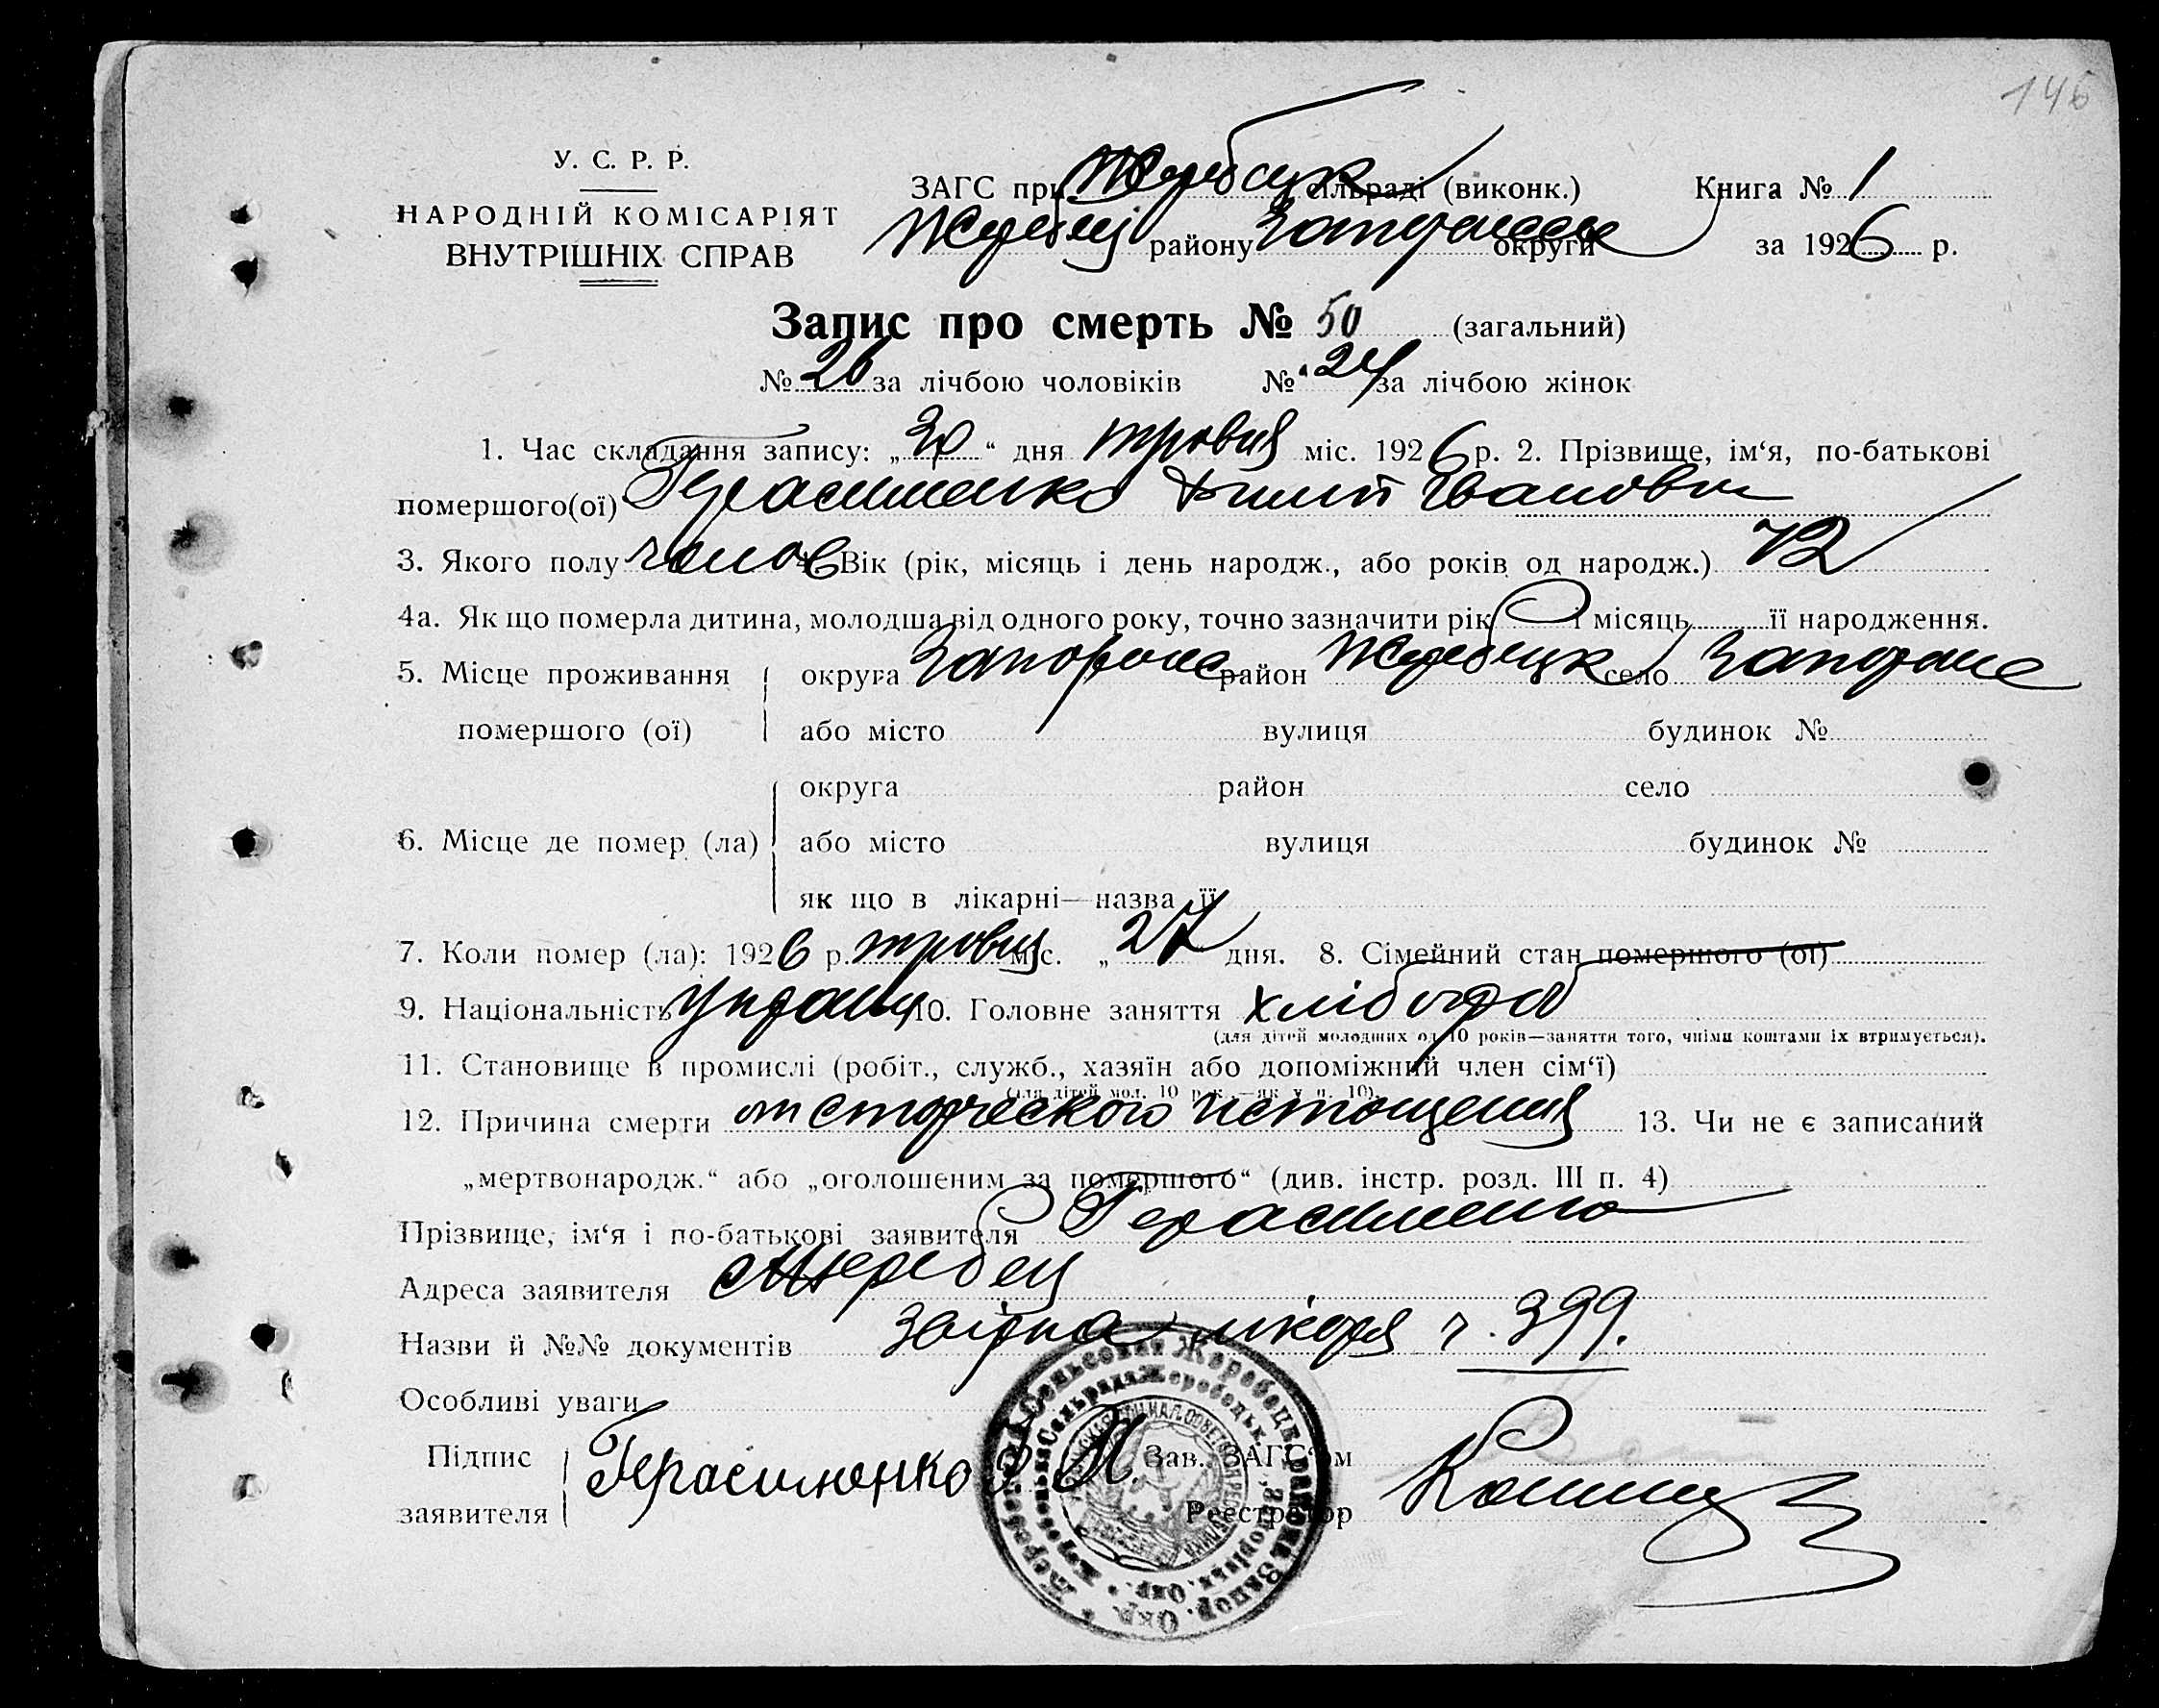 146
У. С. Р. Р.
НАРОДНІЙ КОМІСАРІЯТ
ВНУТРІШНІХ СПРАВ
ЗАГС при Жеребецк сільраді (виконк.) Книга № 1
Жеребец району Запорожск округи за 1926 р.
Запис про смерть № 50 (загальний)
№ 26 за лічбою чоловіків № 24 за лічбою жінок
1. Час складання запису: „30“ дня травня міс. 1926 р. 2. Прізвище, ім‘я, по-батькові
помершого(ої) Герасименко Іванович
3. Якого полу чолов 4. Вік (рік, місяць і день народж., або років од народж.) 72
4а. Як що померла дитина, молодша від одного року, точно зазначити рік і місяць її народження.
5. Місце проживання округа Запорожс район Жеребецк село
помершого (ої) або місто вулиця будинок №
округа район село
6. Місце де помер (ла) або місто вулиця будинок №
як що в лікарні—назва її
7. Коли помер (ла): 1926 р. травня міс. „27 дня. 8. Сімейний стан помершого (ої)
9. Національність Украин 10. Головне заняття хлібороб
(для дітей молодших од 10 років—заняття того, чиїми коштами їх втримується).
11. Становище в промислі (робіт., служб., хазяїн або допоміжний член сім‘ї)
(для дітей мол. 10 р. —як у п. 10).
12. Причина смерти от старческого истощения 13. Чи не є записаний
„мертвонародж.“ або „оголошеним за помершого“ (див. інстр. розд. III п. 4)
Прізвище, ім‘я і по-батькові заявителя Герасименко
Адреса заявителя с Жеребец
Назви й №№ документів лікаря ч. 399.
Особливі уваги
Підпис Герасименко Зав. ЗАГС‘ом
заявителя Реєстратор